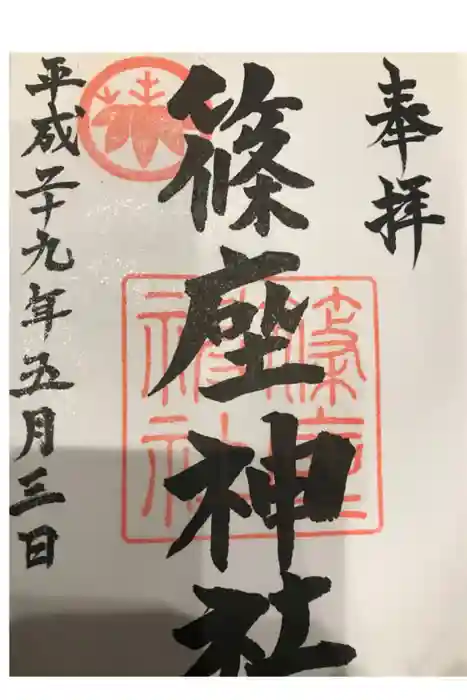 奉拝
篠座神社
篠座
神社
平成二十九年五月三日